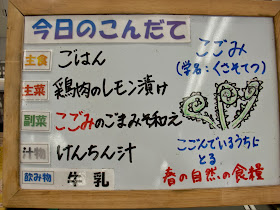 今日のこんだて
主食 ごはん
主菜 鶏肉のレモン漬け
副菜 こごみのごまみそ和え
汁物 けんちん汁
飲み物 牛乳
こごみ
(学名:くさそてつ)
こごんでいるうちに
とる
春の自然の食糧